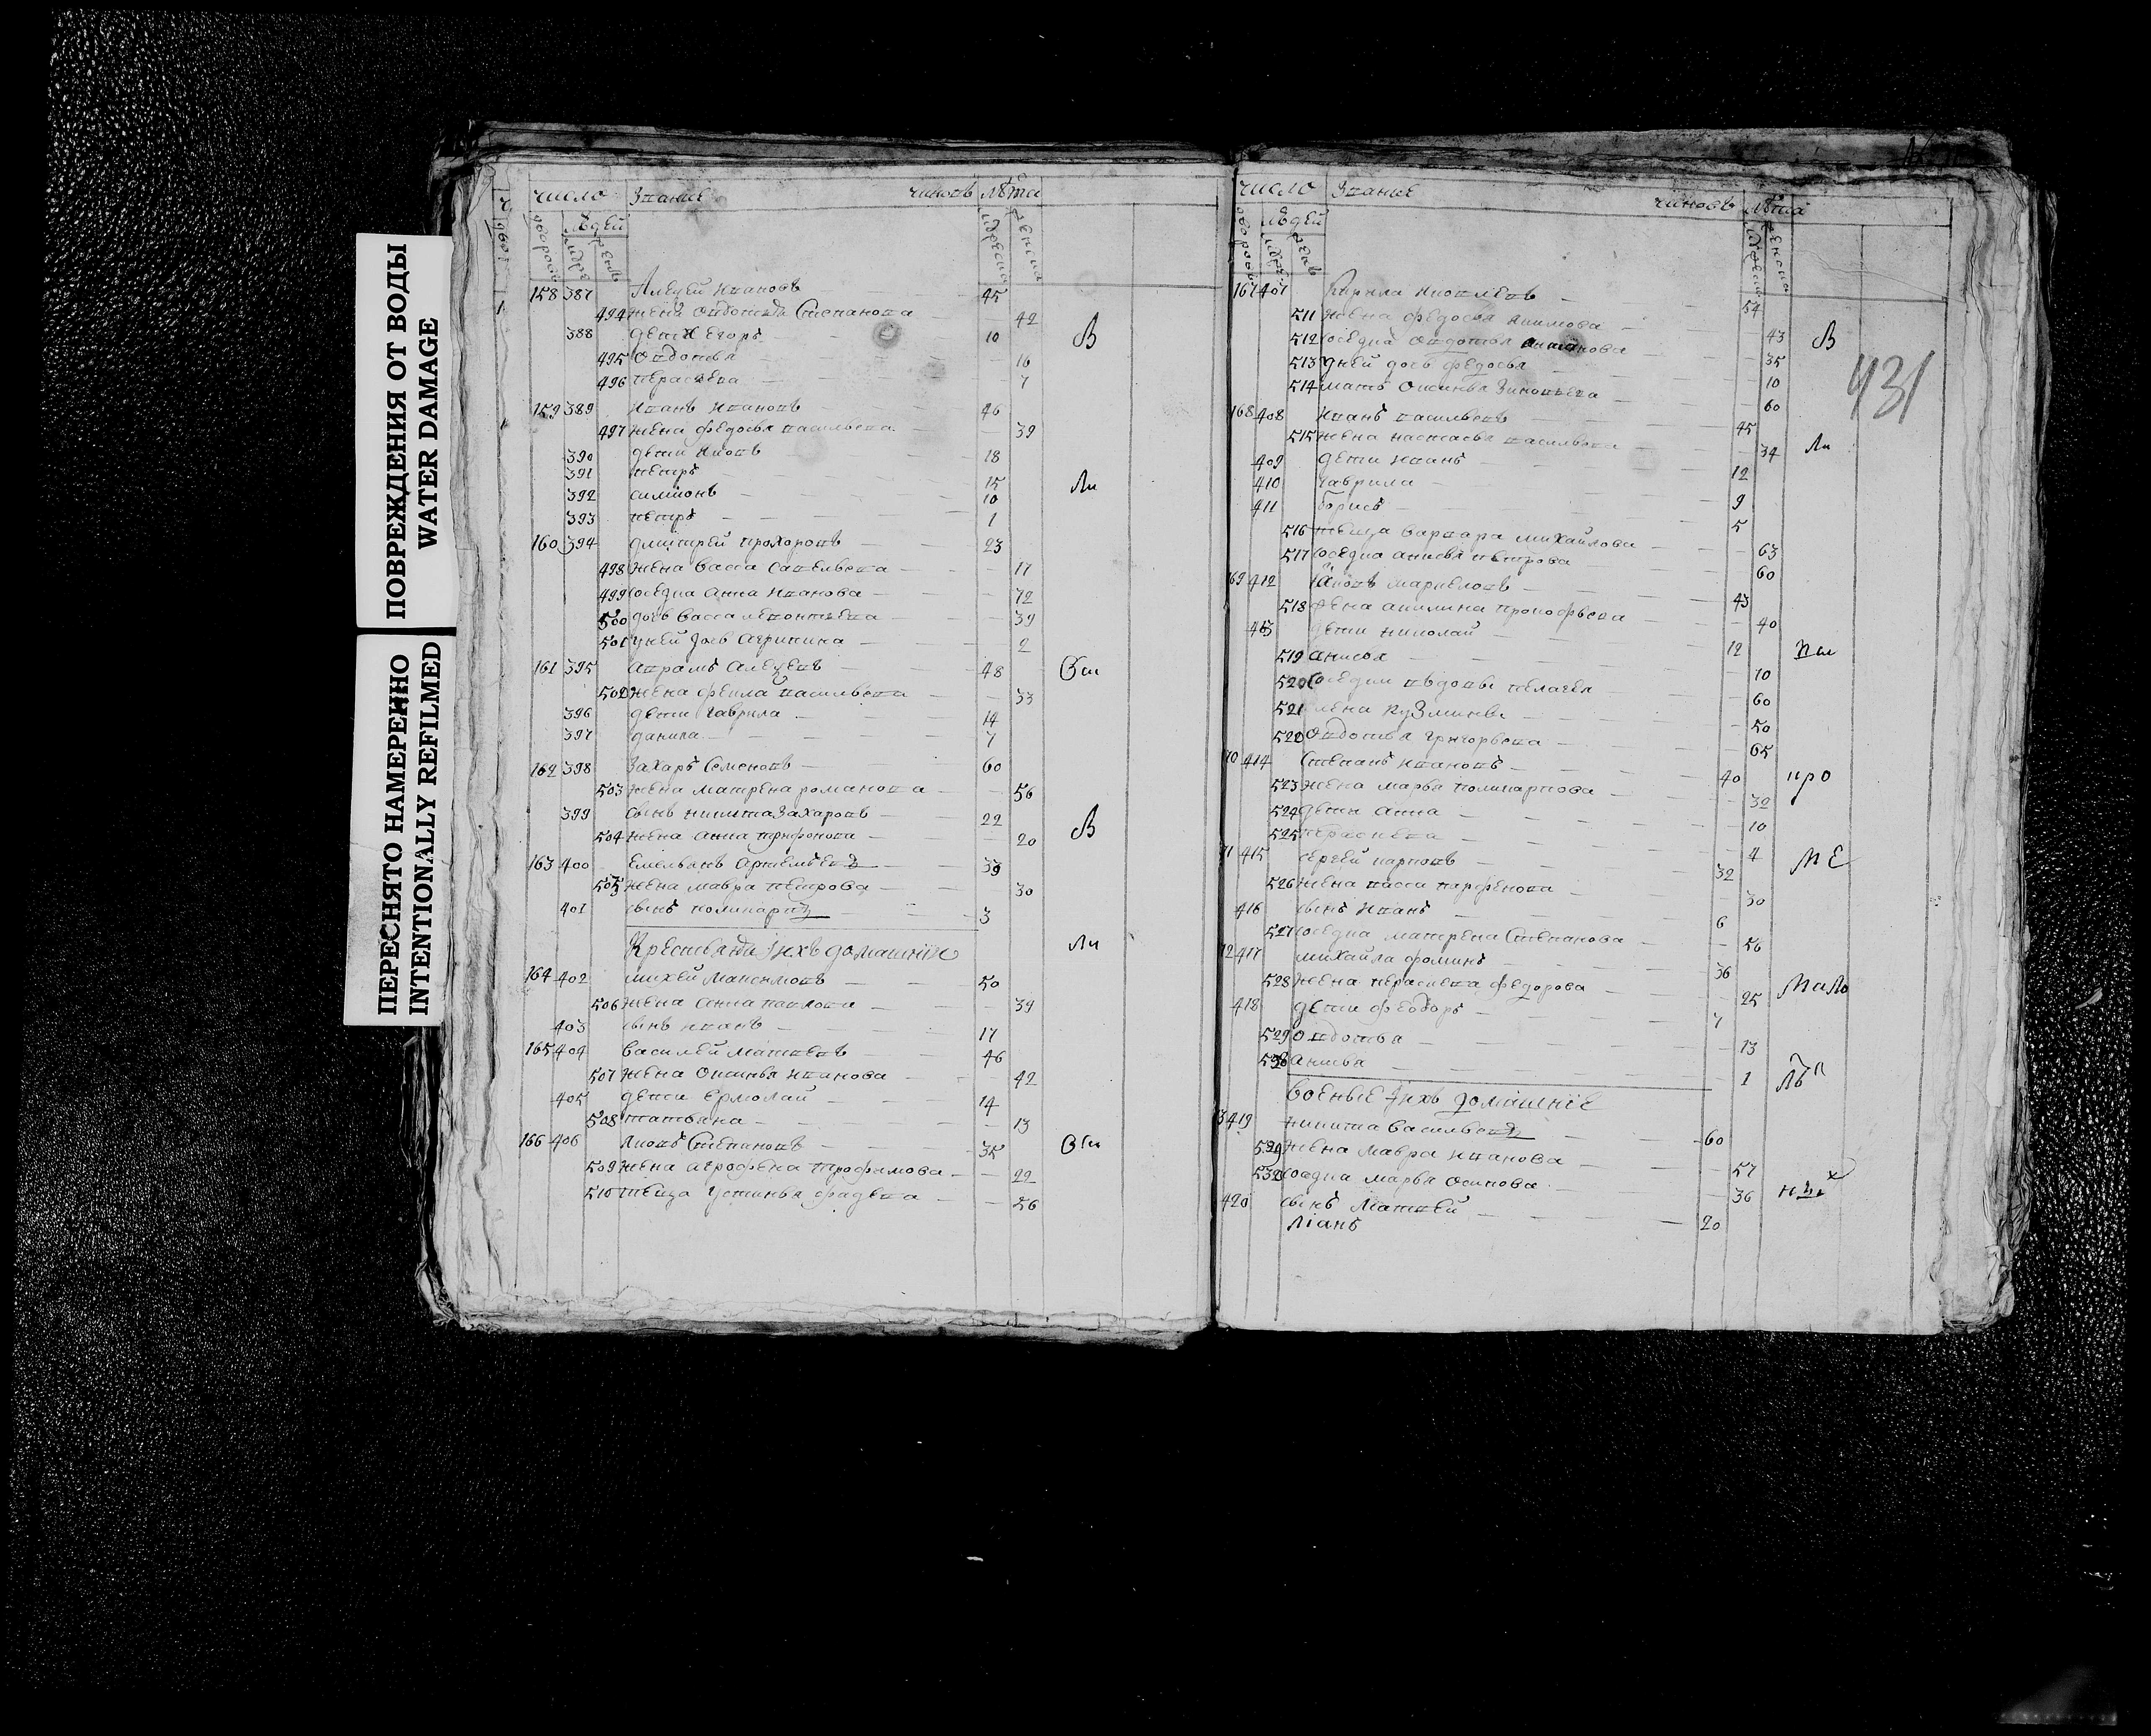 ПОВРЕЖДЕНИЯ ОТ ВОДЫ
WATER DAMAGE
ПЕРЕСНЯТО НАМЕРЕННО
INTENTIONALLY REFILMED
число Звание чиновъ лѣта
людей
158 387 Алеѯей Ивановъ 45
494 жена Овдотья Степанова 42
388 дети Егоръ 10
В
495 Овдотья 16
496 Парасковья 7
159 389 Иванъ Ивановъ 46
497 жена Федосья Васильева 39
390 дети Яковъ 18
391 Петръ 15
Ли
392 Симионъ 10
393 Петръ 1
160 394 Дмитрей Прохоровъ 23
498 жена Васса Савельева 17
499 соседка Анна Иванова 72
500 дочь Васса Леонтьева 39
501 у ней дочь Агрипина 2
161 395 Аврамъ Алеѯеевъ 48
502 жена Фекла Васильева 33
396 дети Гаврила 14
397 Данила 7
162 398 Захаръ Семеновъ 60
503 жена Матрена Романова 56
399 сынъ Никита Захаровъ 22
В
504 жена Анна Трифонова 20
163 400 Емельянъ Артемьевъ 39
505 жена Мавра Петрова 30
401 сынъ Поликарпъ 3
Крестьяне и ихъ домашніе
Ли
164 402 Михей Максимовъ 50
506 жена Анна Павлова 39
403 сынъ Иванъ 17
165 404 Василей Матвеевъ 46
507 жена Оксинья Иванова 42
405 дети Ермолай 14
508 Татьяна 13
166 406 Яковъ Степановъ 35
509 жена Агрофена Трофимова 22
510 теща Устинья Фадеева 56
число Звание чиновъ лѣта
людей
431
167 407 Кирила Яковлевъ 54
511 жена Федосья Акимова 43
В
512 соседка Овдотья 35
513 у ней дочь Федосья 10
514 мать Оксинья Зиновьева 60
168 408 Иванъ Васильевъ 45
515 жена Настасья Васильева 34
Ли
409 дети Иванъ 12
410 Гаврила 9
411 Борисъ 5
516 теща Варвара Михайлова 63
517 соседка Анисья Петрова 60
69 412 Яковъ Маркеловъ 43
518 жена Акилина Прокофьева 40
413 дети Николай 12
519 Анисья 10
520 соседки вдовы Пелагея 60
521 Кузмина 50
522 Овдотья Григорьева 65
70 414 Степанъ Ивановъ 40
про
523 жена Марья Поликарпова 32
524 дети Анна 10
525 Парасковья 4
71 415 Сергей Карповъ 32
МЕ
526 жена Васса Парфенова 30
416 сынъ Иванъ 6
527 соседка Матрена Степанова 56
72 417 Михайла Фоминъ 36
528 жена Парасковья Федорова 25
418 дети Феодоръ 7
529 Овдотья 13
530 Анисья 1
военые и ихъ домашніе
3 419 Никита Васильевъ 60
жена Мавра Иванова 57
532 соседка Марья Осипова 36
420 сынъ Матвей 20